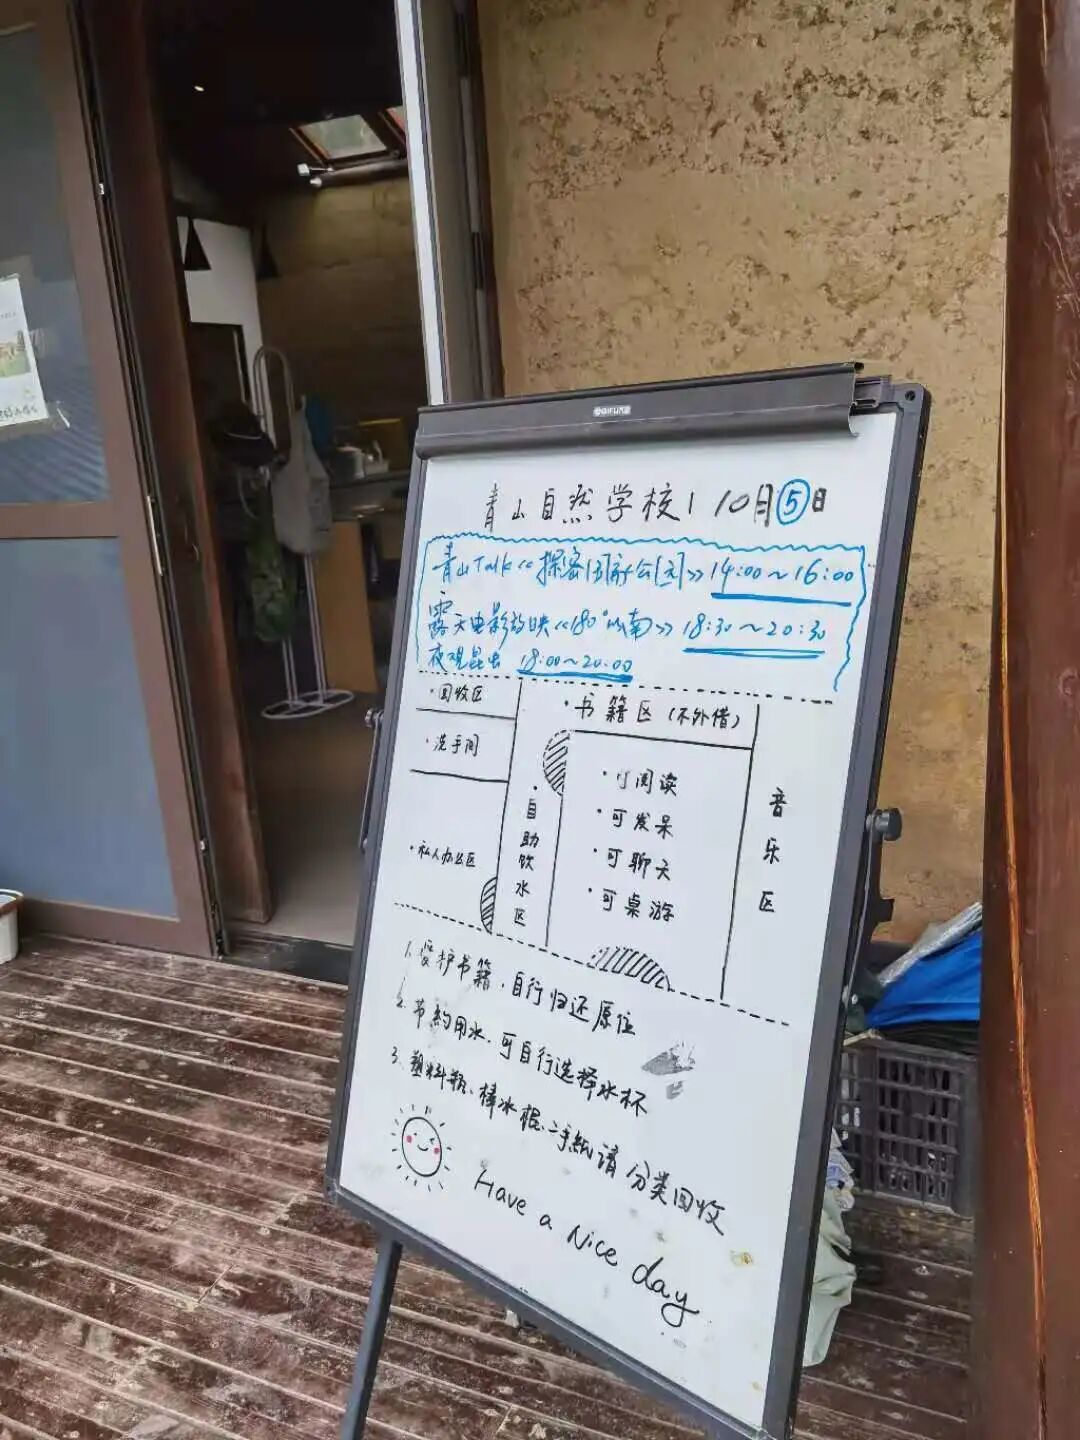 青山自然学校 | 10月⑤日
青山Talk《探密国家公园》14:00~16:00
露天电影放映《180°以南》18:30~20:30
夜观昆虫 18:00~20:00
·回收区
·洗手间
·私人办公区
·自助饮水区
·书籍区(不外借)
·可阅读
·可发呆
·可聊天
·可桌游
音乐区
1. 爱护书籍,自行归还原位
2. 节约用水,可自行选择水杯
3. 塑料瓶、棒冰棍、手纸请分类回收
Have a Nice day